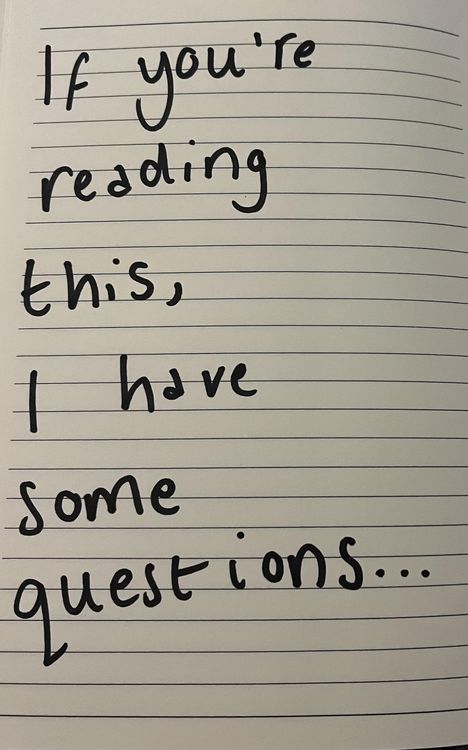 If you're
reading
this,
I have
some
questions...